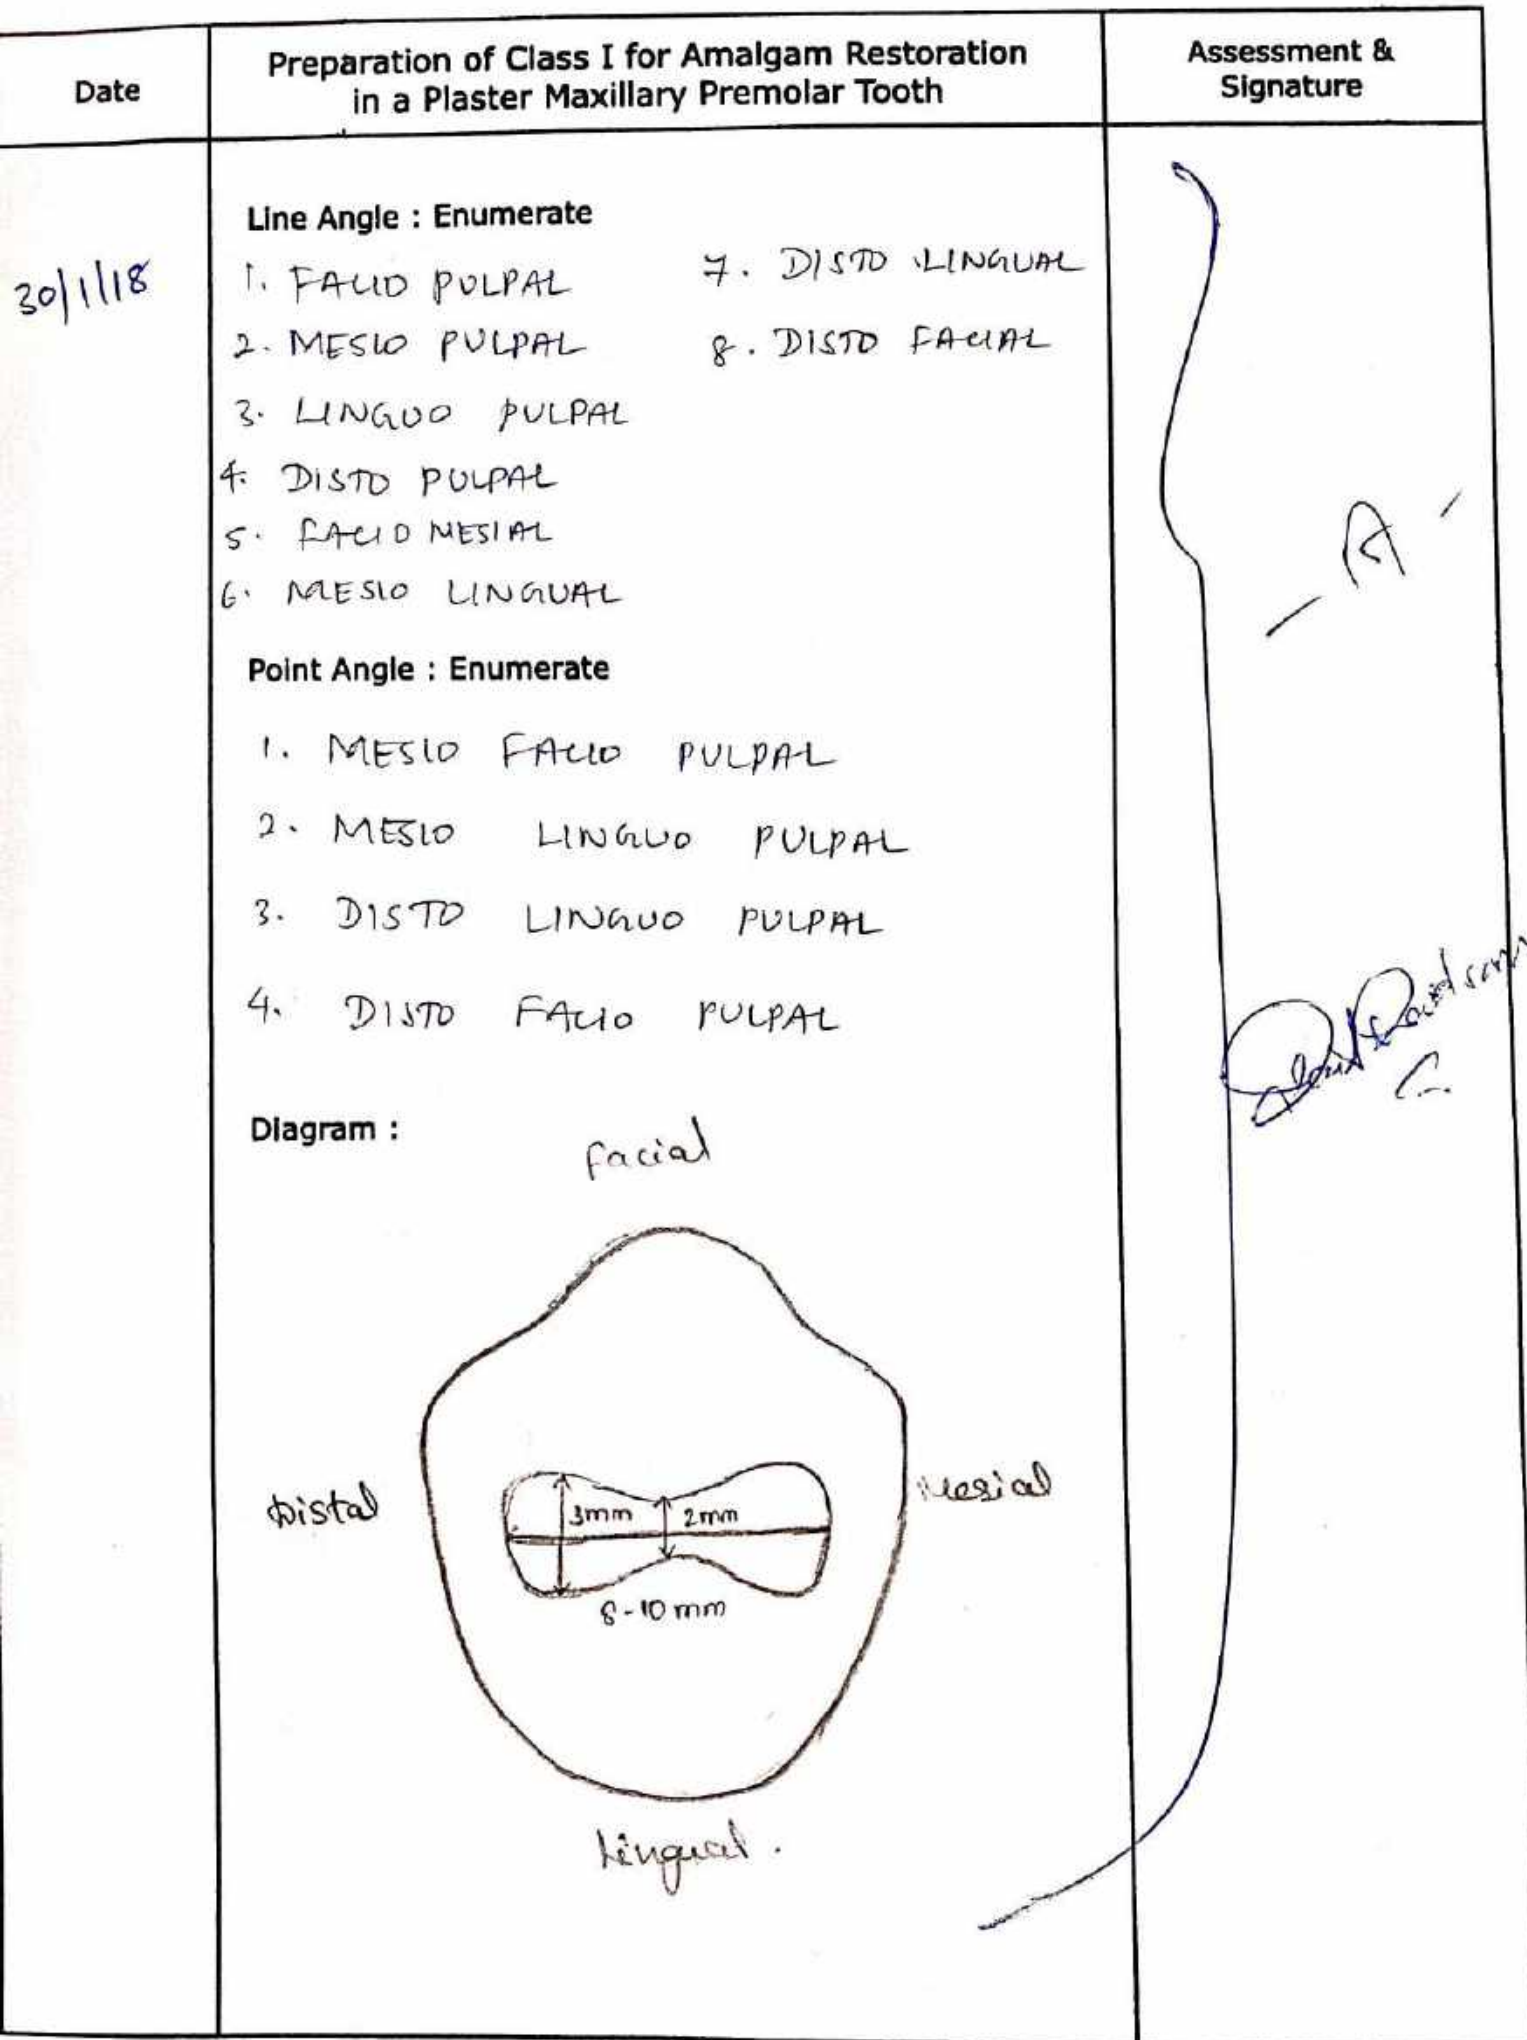 Date
Preparation of Class I for Amalgam Restoration
in a Plaster Maxillary Premolar Tooth
Assessment &
Signature
30/1/18
Line Angle : Enumerate
1. FACIO PULPAL
2. MESIO PULPAL
3. LINGUO PULPAL
4. DISTO PULPAL
5. FACIO MESIAL
6. MESIO LINGUAL
7. DISTO LINGUAL
8. DISTO FACIAL
- A -
Point Angle : Enumerate
1. MESIO FACIO PULPAL
2. MESIO LINGUO PULPAL
3. DISTO LINGUO PULPAL
4. DISTO FACIO PULPAL
Diagram :
Facial
Distal
3mm
2mm
8-10 mm
Mesial
Lingual.